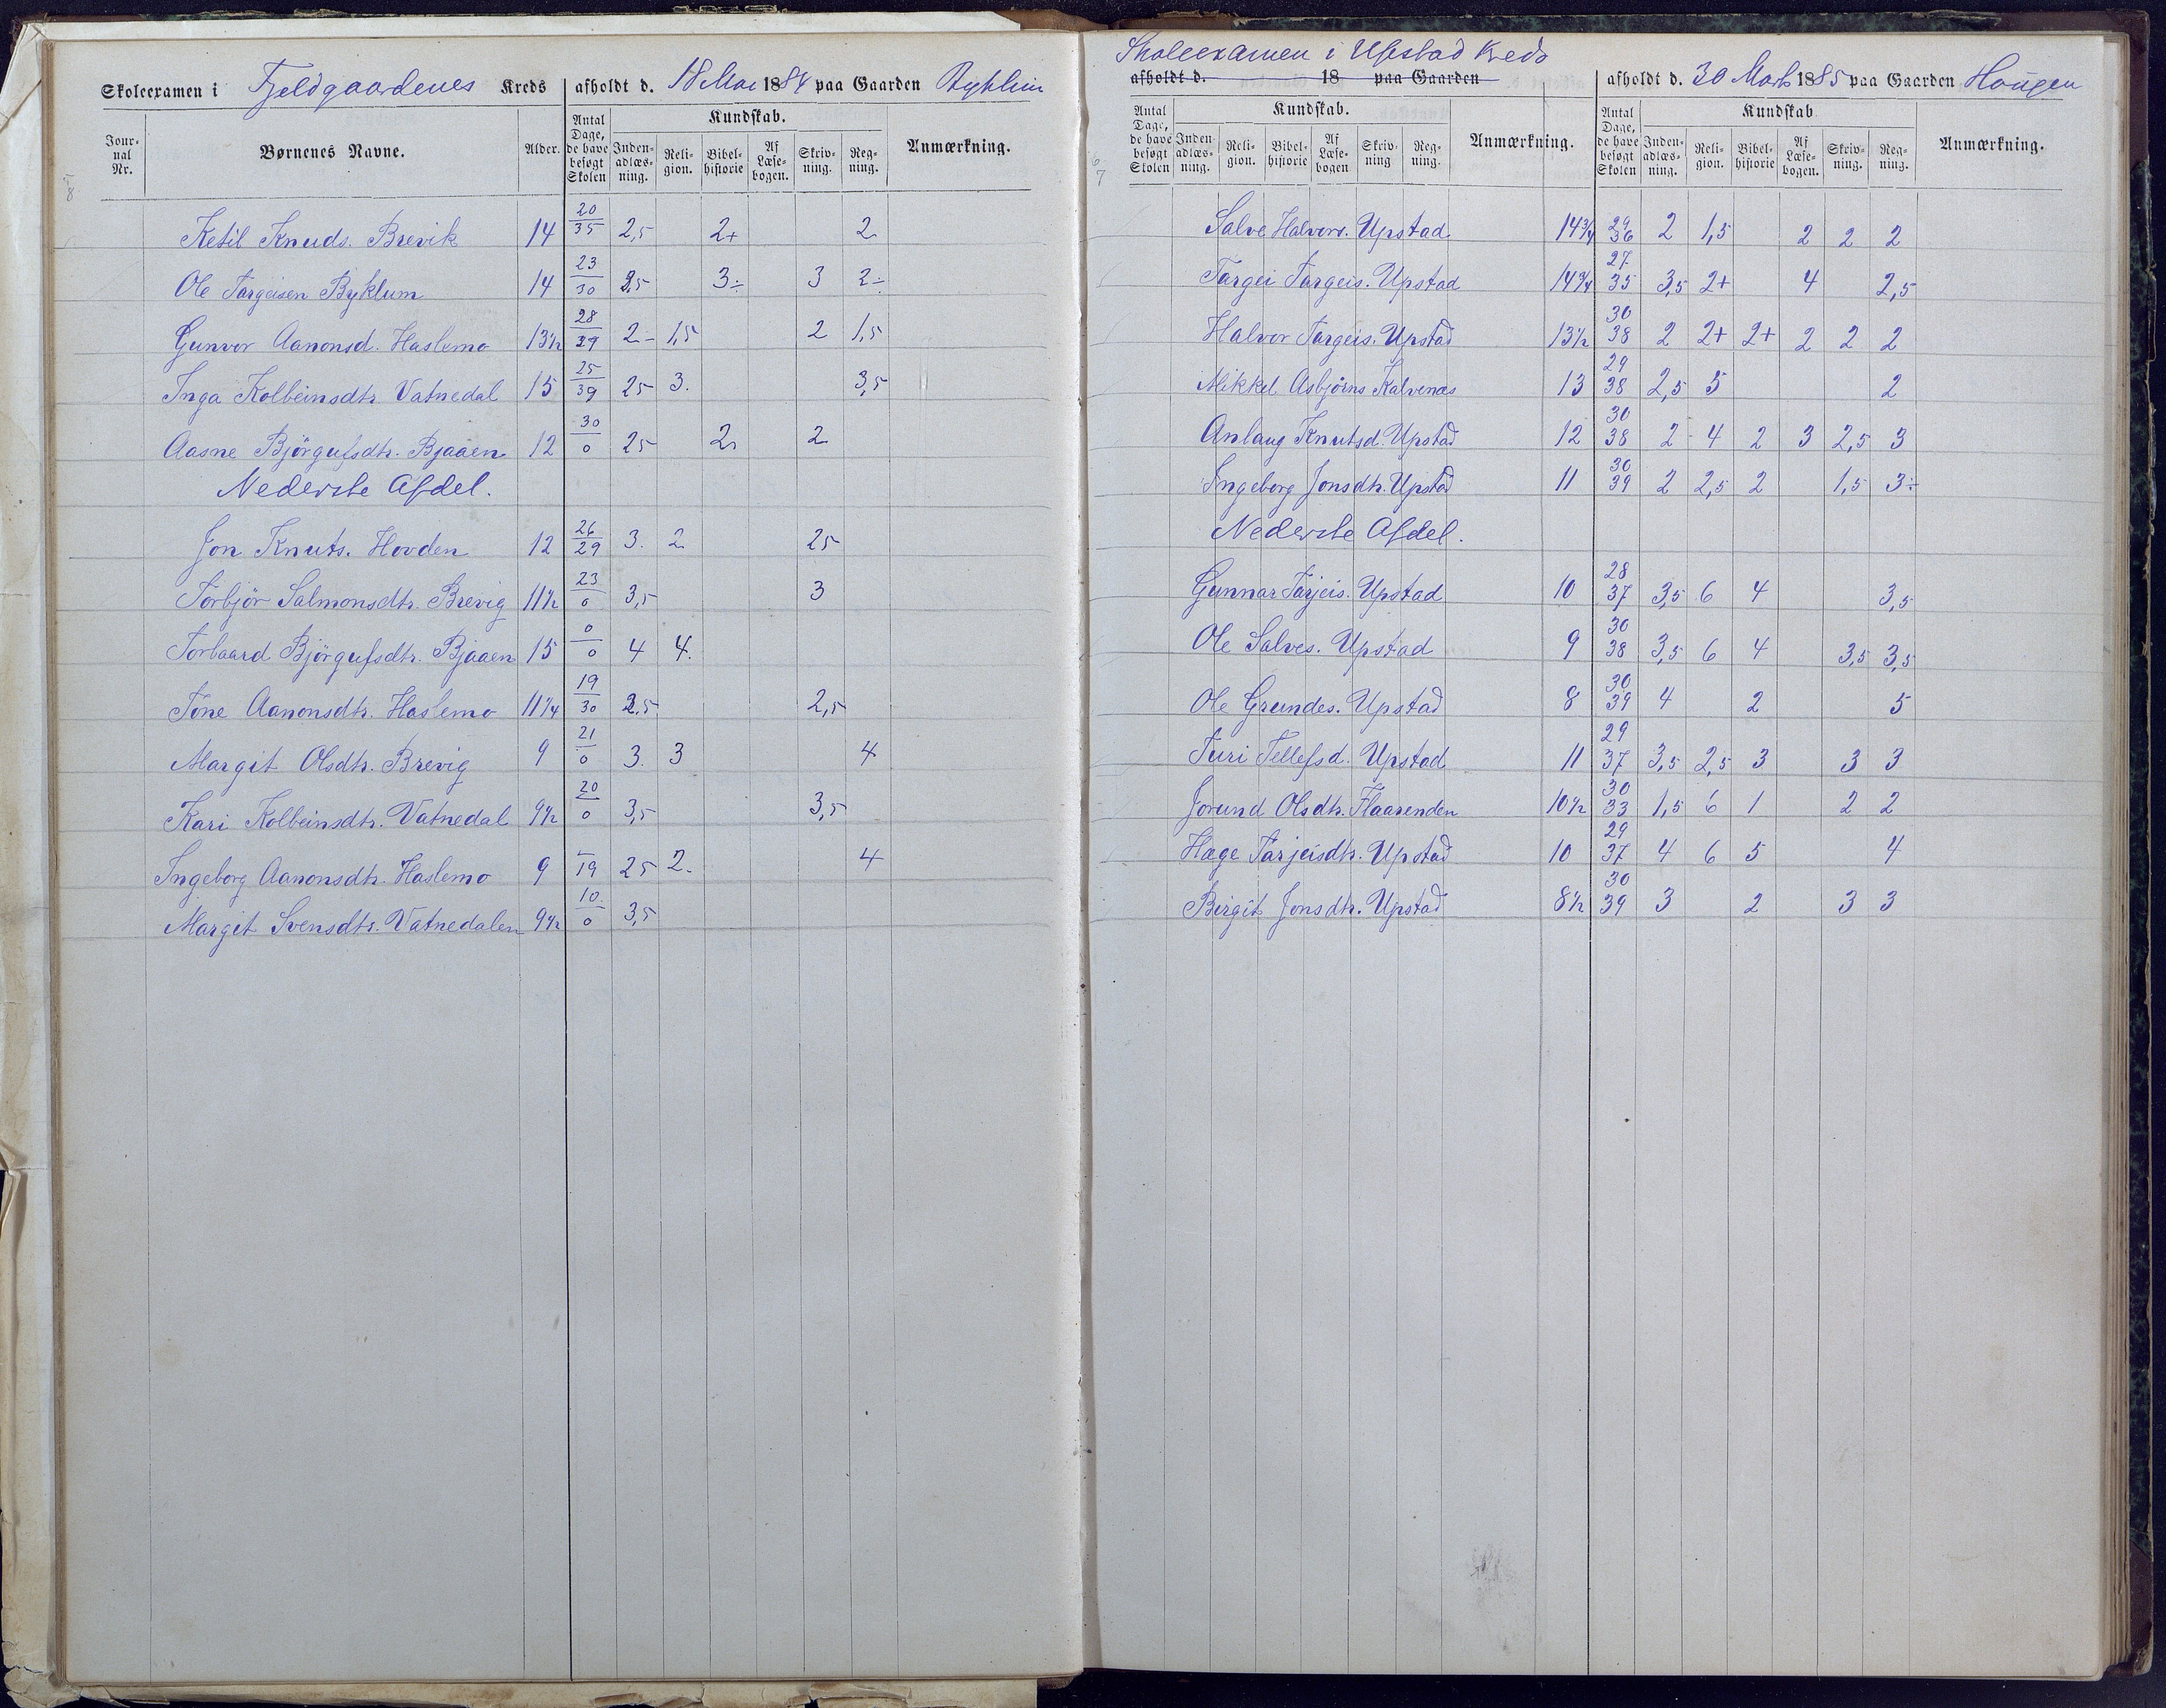 Skoleexamen i Fjeldgaardenes Kreds afholdt d. 18 Mai 1884 paa Gaarden
Jour-nal Nr. Børnenes Navne. Alder. Antal Dage, de have besøgt Skolen Kundskab. Inden-adlæs-ning. Reli-gion. Bibel-historie Af Læse-bogen. Skriv-ning. Reg-ning. Anmærkning.
Ketil Knuds. Brevik 14 20/35 2,5 2+ 2
Ole Targeisen Byklum 14 23/30 2,5 3÷ 3 2÷
Gunvor Aanonsd. Haslemo 13½ 28/39 2- 1,5 2 1,5
Inga Kolbeinsdtr. Vatnedal 15 25/39 25 3. 3,5
Aasne Bjørgufsdtr. Bjaaen 12 30/0 25 2 2
Nederste Afdel.
Jon Knuts. Hovden 12 26/29 3. 2 25
Torbjør Salmonsdtr. Brevig 11½ 23/0 3,5 3
Torbaard Bjørgufsdtr. Bjaaen 15 0/0 4 4.
Tone Aanonsdtr. Haslemo 11¼ 19/30 2.5 2,5
Margit Olsdtr. Brevig 9 21/0 3. 3 4
Kari Kolbeinsdtr. Vatnedal 9½ 20/0 3,5 3,5
Ingeborg Aanonsdtr. Haslemo 9 –/19 25 2. 4
Margit Svensdtr. Vatnedalen 9½ 10/0 3,5
Skoleexamen i Upstad Kreds
afholdt d. 18 paa Gaarden afholdt d. 30 Marts 1885 paa Gaarden Haugen
Antal Dage, de have besøgt Skolen Kundskab. Inden-adlæs-ning. Reli-gion. Bibel-historie Af Læse-bogen Skriv-ning Reg-ning. Anmærkning. Antal Dage, de have besøgt Skolen Kundskab Inden-adlæs-ning. Reli-gion. Bibel-historie Af Læse-bogen. Skriv-ning. Reg-ning. Anmærkning.
Salve Halvors. Upstad 14¾ 29/36 2 1,5 2 2 2
Targei Targeis. Upstad 14¾ 27/35 3,5 2+ 4 2,5
Halvor Targeis. Upstad 13½ 30/38 2 2+ 2+ 2 2 2
Mikkel Asbjørns Kalvenæs 13 29/38 2,5 5 2
Anlaug Knutsd. Upstad 12 30/38 2- 4 2 3 2,5 3
Ingeborg Jonsdtr. Upstad 11 30/39 2 2,5 2 1,5 3÷
Nederste Afdel.
Gunnar Tarjeis. Upstad 10 28/37 3,5 6 4 3,5
Ole Salves. Upstad 9 30/38 3,5 6 4 3,5 3,5
Ole Grundes. Upstad 8 30/39 4 2 5
Turi Tellefsd. Upstad 11 29/37 3,5 2,5 3 3 3
Jorund Olsdtr. Flaarenden 10½ 30/33 1,5 6 1 2 2
Hæge Tarjeisdtr. Upstad 10 29/37 4 6 5 4
Birgit Jonsdtr. Upstad 8½ 30/39 3 2 3 3